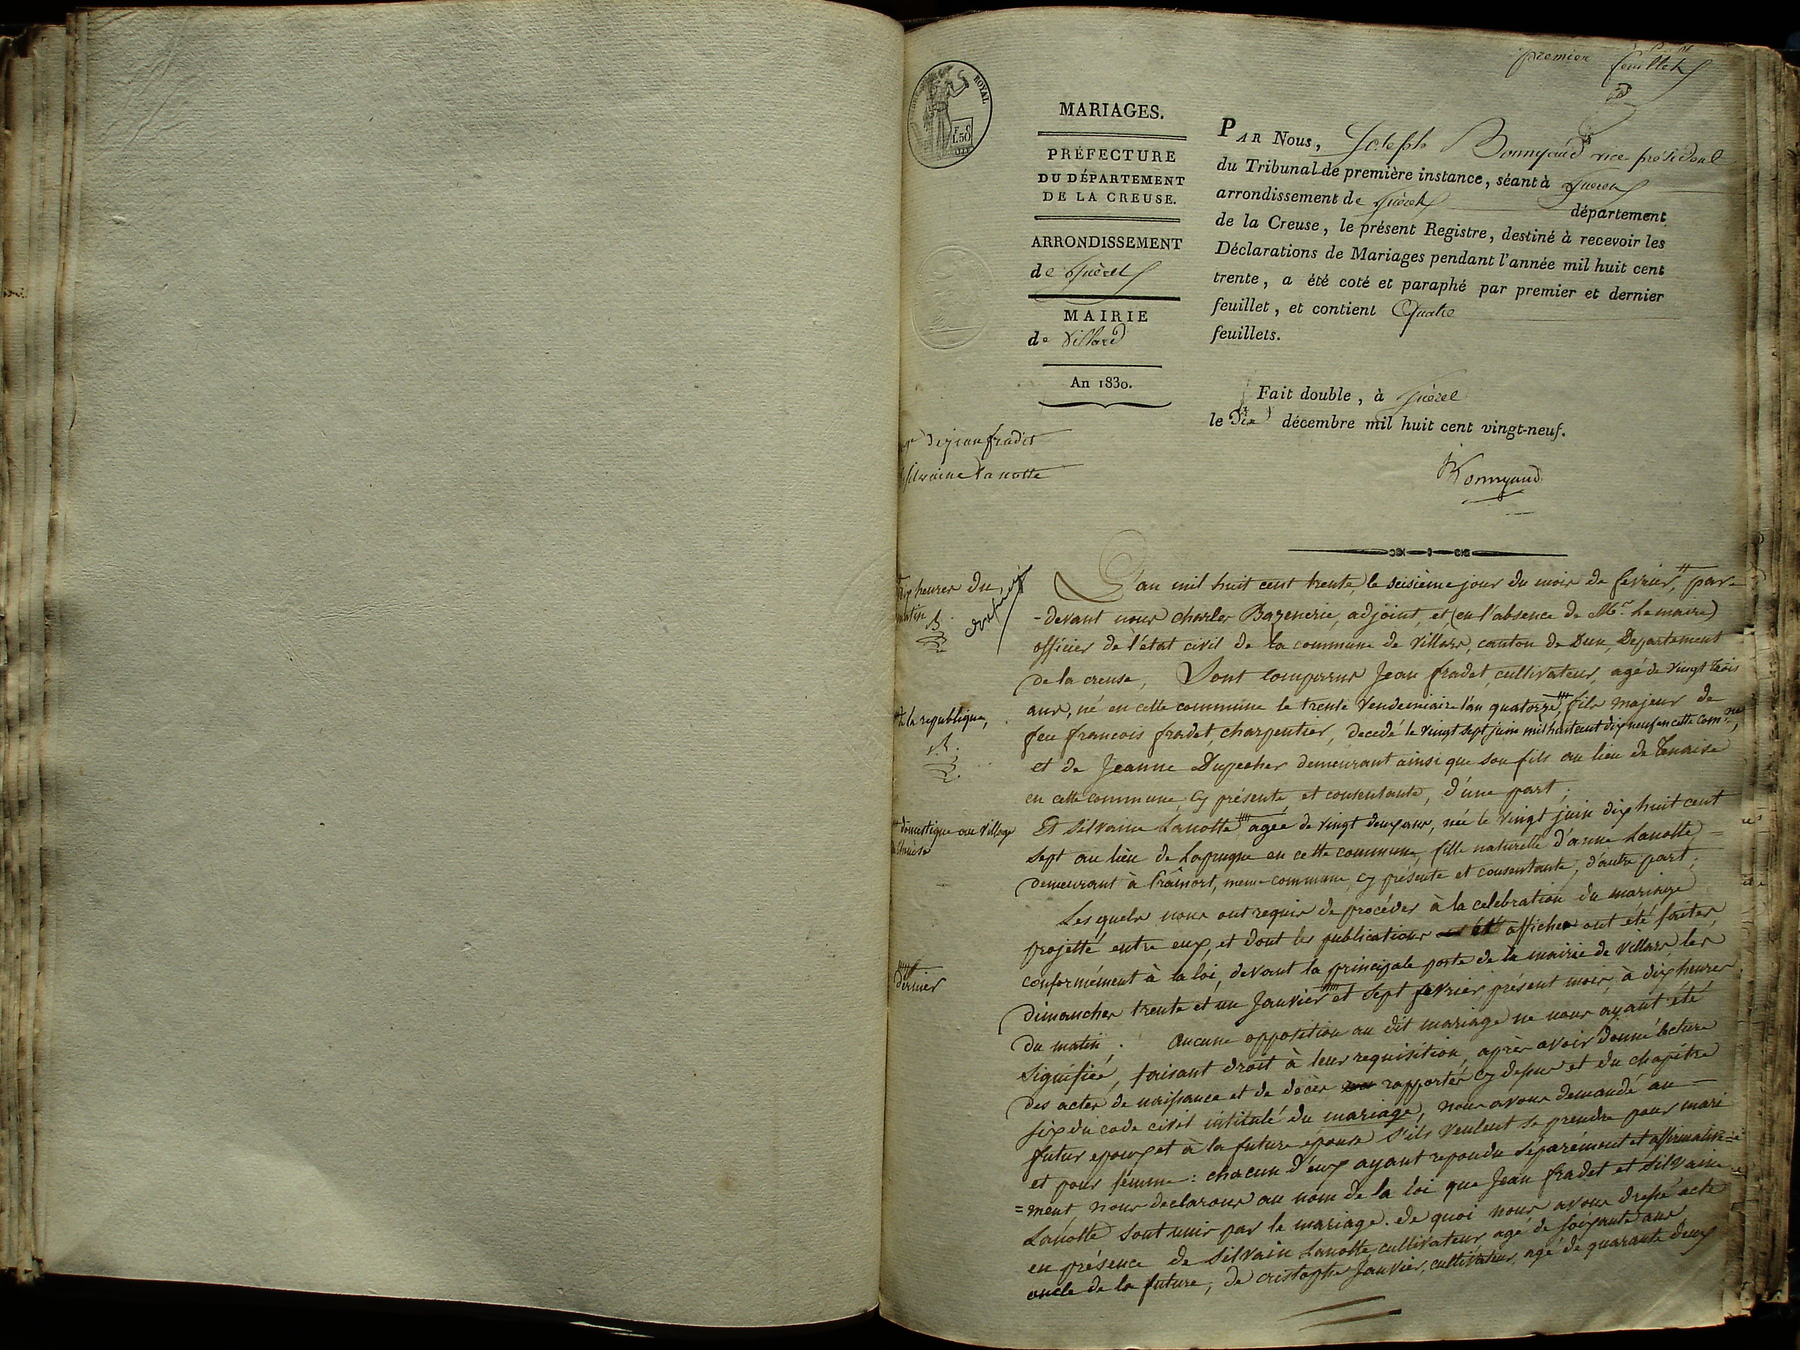 premier feuillet
ROYAL
1.50
MARIAGES.
PRÉFECTURE
DU DÉPARTEMENT
DE LA CREUSE.
ARRONDISSEMENT
de Guéret
MAIRIE
de Villard
An 1830.
PAR Nous, Joseph Bonnyaud vice président
du Tribunal de première instance, séant à Guéret
arrondissement de Guéret département
de la Creuse, le présent Registre, destiné à recevoir les
Déclarations de Mariages pendant l'année mil huit cent
trente, a été coté et paraphé par premier et dernier
feuillet, et contient Quatre
feuillets.
Fait double, à Guéret
le Dix décembre mil huit cent vingt-neuf.
Bonnyaud
de jean fradet
silvaine Lanotte
Dix heures du
matin
L'an mil huit cent trente, le seisième jour du mois de fevrier, par-
-devant nous charles Bazenerie, adjoint, et (en l'absence de Mr. Le maire)
officier de l'état civil de la commune de Villars, canton de Dun, Departement
de la creuse, Sont comparus Jean fradet, cultivateur, agé de vingt trois
ans, né en cette commune le trente Vendemiaire l'an quatorze, fils majeur de
feu francois fradet, charpentier, decedé le vingt sept juin mil huit cent dix neuf en cette com.ne,
et de Jeanne Dupecher demeurant ainsi que son fils au lieu de
en cette commune, cy présente, et consentante, d'une part;
Et Silvaine Lanotte agée de vingt deux ans, née le vingt juin dix huit cent
sept au lieu de Laprugne en cette commune, fille naturelle d'anne Lanotte =
demeurant à Prâmort, meme commune, cy présente et consentante, d'autre part;
de la republique,
domestique au village
dernier
Les quels nous ont requis de procéder à la celebration du mariage
projetté entre eux, et dont les publications affiches ont été faites,
conformément à la loi, devant la principale porte de la mairie de Villars, les
dimanches trente et un Janvier et sept fevrier, présent mois, à dix heures
du matin; Aucune opposition au dit mariage ne nous ayant été
signifiée, faisant droit à leur requisition, après avoir donné lecture
des actes de naissance et de décès rapportés cy dessus et du chapitre
six du code civil intitulé du mariage, nous avons demandé au
futur epoux et à la future epouse s'ils veulent se prendre pour mari
et pour femme: chacun d'eux ayant repondu séparément et affirmative=
=ment nous declarons au nom de la loi que Jean fradet et Silvaine
Lanotte sont unis par le mariage. de quoi nous avons dressé acte
en présence de Silvain Lanotte, cultivateur, agé de soixante ans
oncle de la future, de cristophe Janvier, cultivateur, agé de quarante deux